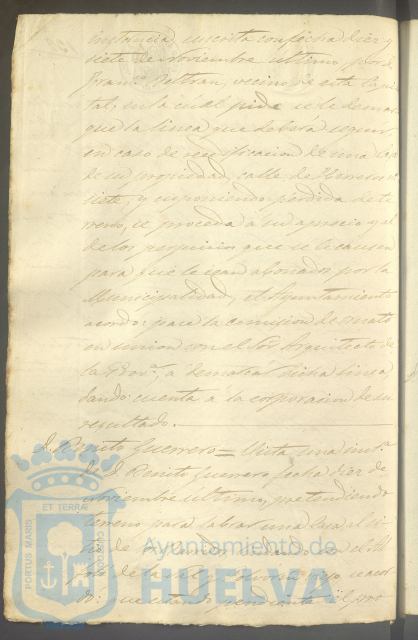 instancia suscrita con fecha diez y
siete de Noviembre ultimo, por D.
Franco. Beltran, vecino de esta Capi-
tal, en la cual pide se le demar-
que la linea que deberá seguir
en caso de reedificacion de una casa
de su propiedad, calle de Herreros n.
siete, y suponiendo perdida de te-
rreno, se proceda á su aprecio y al
de los perjuicios que se le causen
para que le sean abonados por la
Municipalidad, el Ayuntamiento
acordó: pase la comision de ornato
en union con el Sor. Arquitecto de
la Prova. á demarcar dicha linea,
dando cuenta á la corporacion de su
resultado.
D. Benito Guerrero = Vista una inst.a
de D. Benito Guerrero fecha diez de
Noviembre ultimo, pretendiendo
terreno para labrar una casa al si-
tio de
de la sal,
que estando pendiente el pro-
PORTUS MARIS
ET TERRÆ
CUSTODIA
Ayuntamiento de
HUELVA